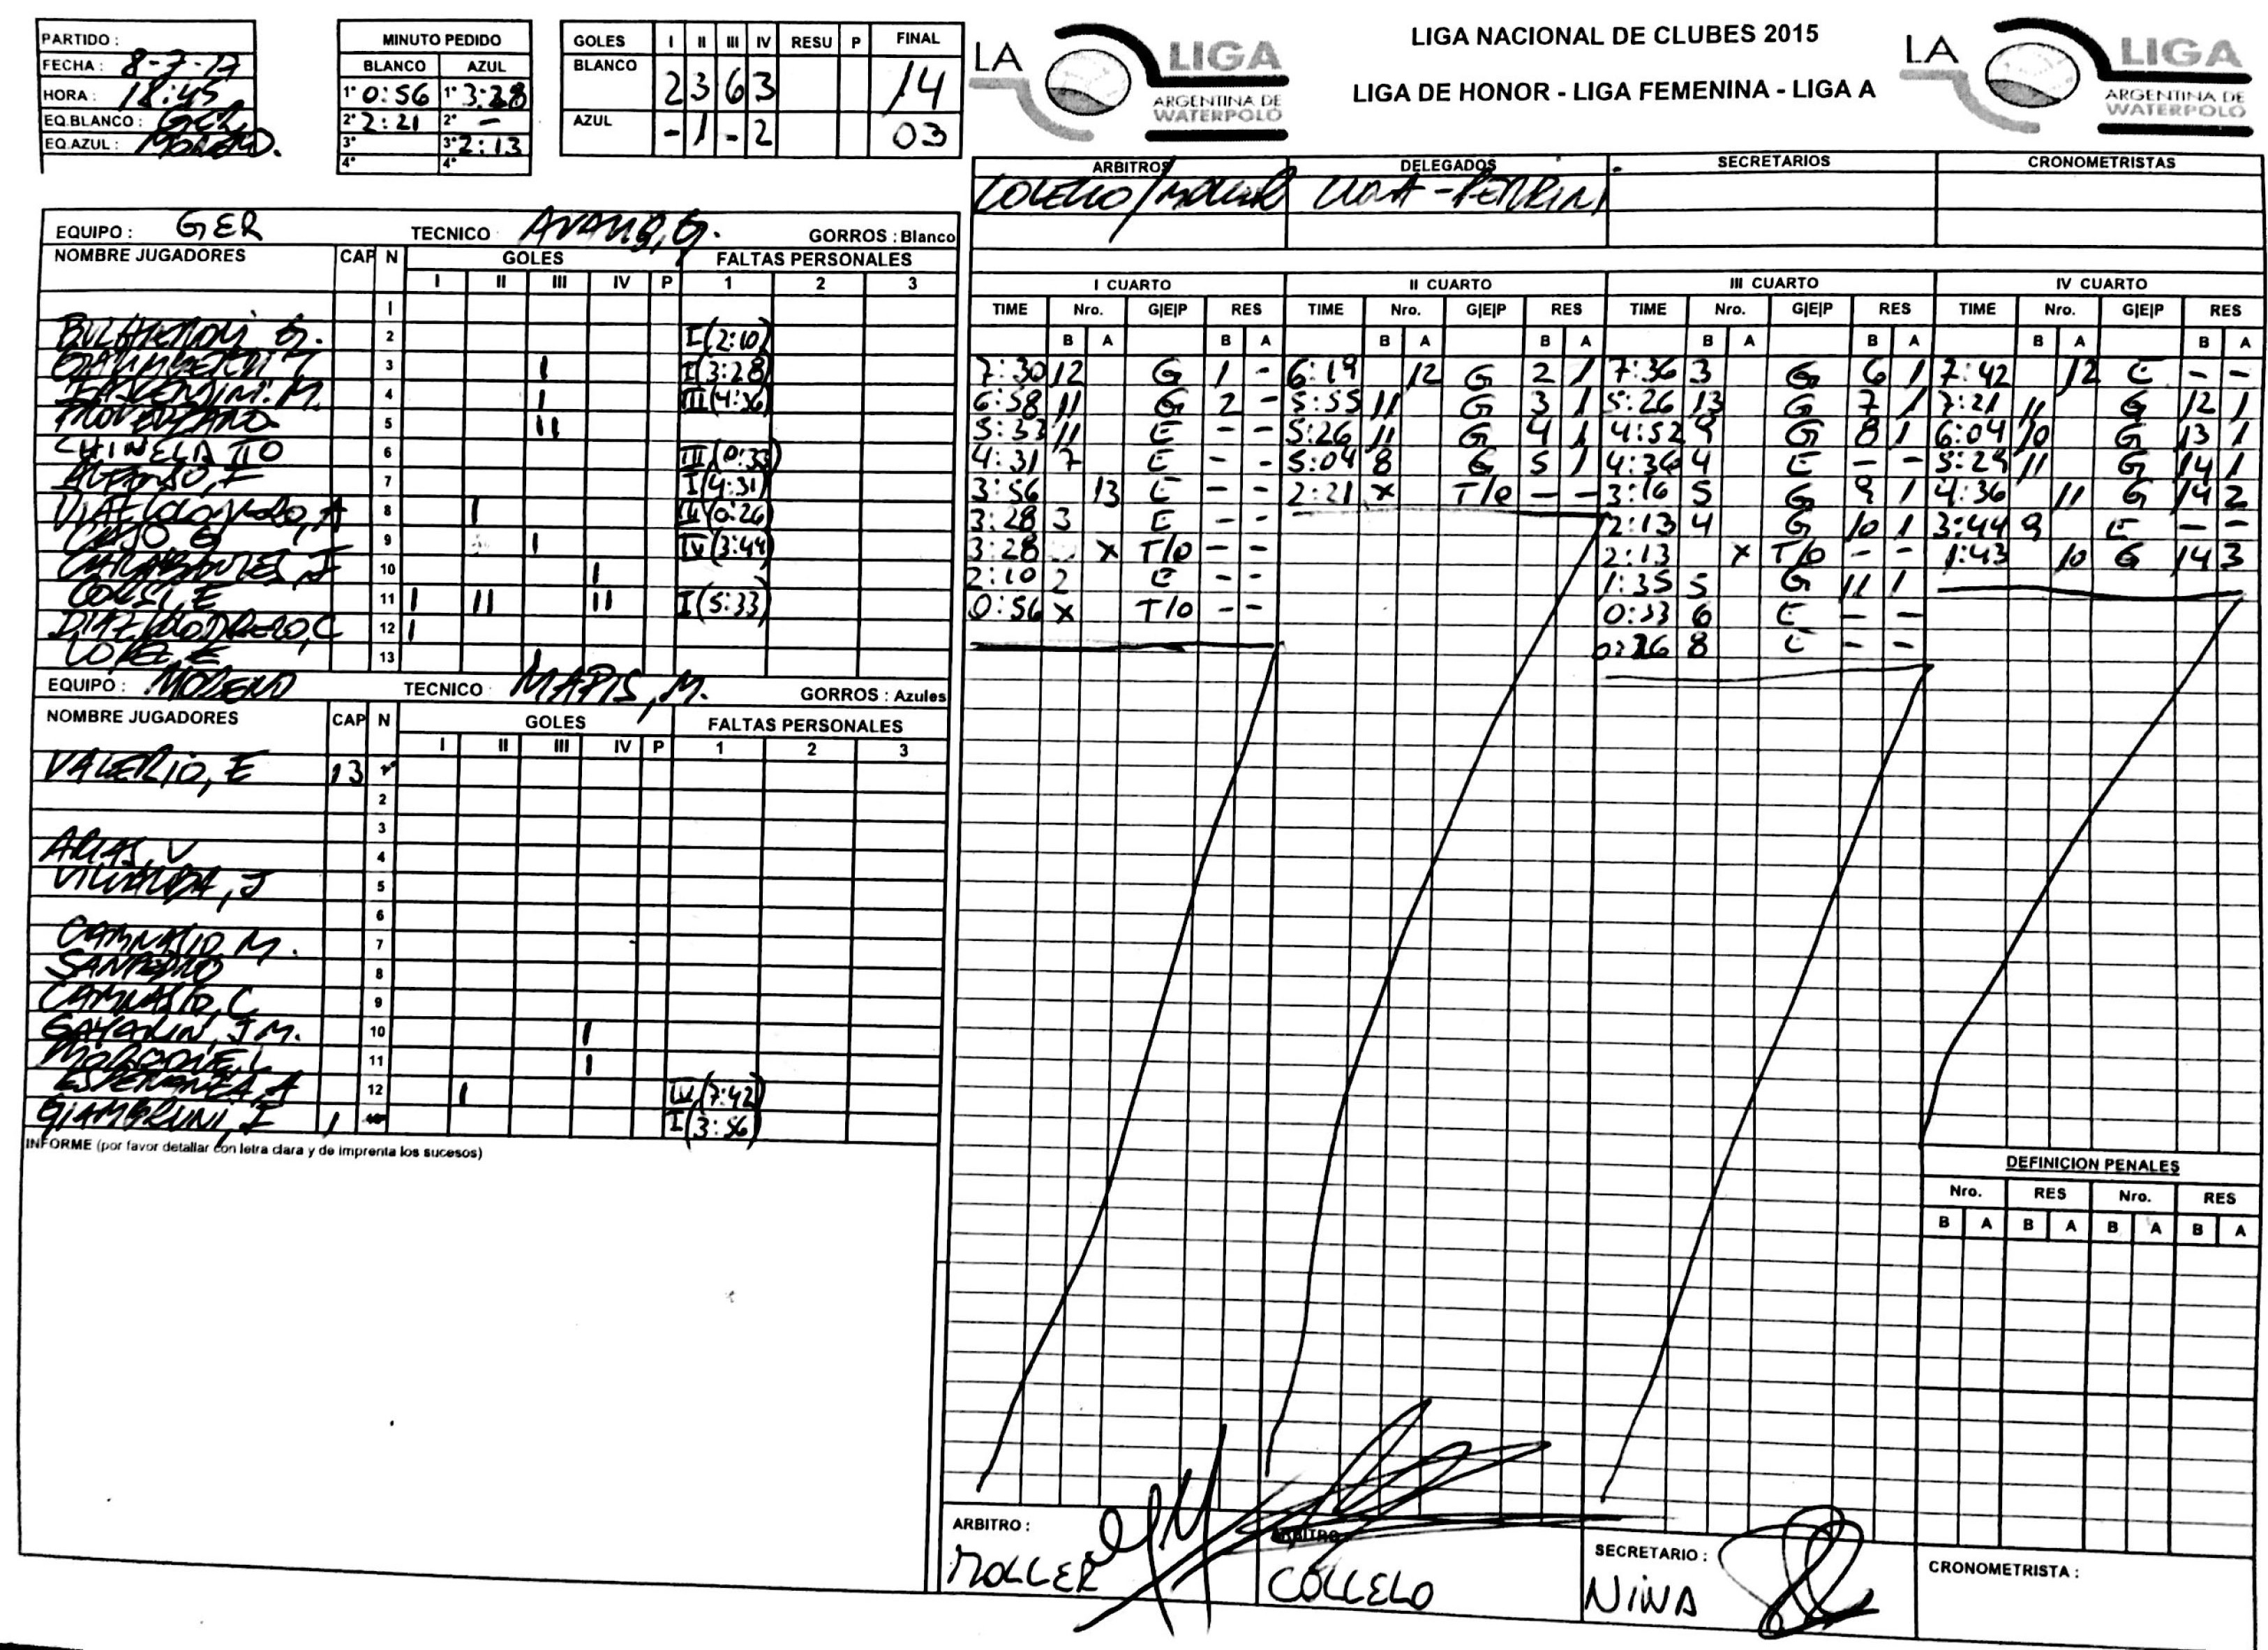 PARTIDO :
FECHA : 8-7-17
HORA : 18:45
EQ.BLANCO : GER
EQ.AZUL : MORENO.
MINUTO PEDIDO
BLANCO AZUL
1° 0:56 1° 3:28
2° 2:21 2° -
3° 3° 2:13
4° 4°
GOLES I II III IV RESU P FINAL
BLANCO 2 3 6 3 14
AZUL - 1 - 2 03
LA LIGA
ARGENTINA DE
WATERPOLO
LIGA NACIONAL DE CLUBES 2015
LIGA DE HONOR - LIGA FEMENINA - LIGA A
LA LIGA
ARGENTINA DE
WATERPOLO
ARBITROS DELEGADOS SECRETARIOS CRONOMETRISTAS
EQUIPO : GER TECNICO GORROS : Blanco
NOMBRE JUGADORES CAP N GOLES FALTAS PERSONALES
I II III IV P 1 2 3
1
2 I (2:10)
3 I I (3:28)
4 I III (4:36)
5 II
6 III (0:33)
ALFONSO, F 7 I (4:31)
8 I III (0:26)
9 I IV (3:44)
10 I
11 I II II I (5:33)
12 I
LOPEZ, E 13
EQUIPO : MORENO TECNICO MAPIS, M. GORROS : Azules
NOMBRE JUGADORES CAP N GOLES FALTAS PERSONALES
I II III IV P 1 2 3
VALERIO, E 13
2
3
ARIAS, V 4
5
6
CAMNASIO, M. 7
SANPEDRO 8
CAMNASIO, C 9
10 I
11 I
ESPERANZA, A 12 I IV (7:42)
GIAMBRUNI, I 1 I (3:56)
INFORME (por favor detallar con letra clara y de imprenta los sucesos)
I CUARTO
TIME Nro. G|E|P RES
B A B A
7:30 12 G 1 -
6:58 11 G 2 -
5:33 11 E - -
4:31 7 E - -
3:56 13 E - -
3:28 3 E - -
3:28 X T/O - -
2:10 2 E - -
0:56 X T/O - -
II CUARTO
TIME Nro. G|E|P RES
B A B A
6:19 12 G 2 1
5:55 11 G 3 1
5:26 11 G 4 1
5:04 8 G 5 1
2:21 X T/O - -
III CUARTO
TIME Nro. G|E|P RES
B A B A
7:36 3 G 6 1
5:26 13 G 7 1
4:52 9 G 8 1
4:36 4 E - -
3:16 5 G 9 1
2:13 4 G 10 1
2:13 X T/O - -
1:35 5 G 11 1
0:33 6 E - -
0:26 8 E - -
IV CUARTO
TIME Nro. G|E|P RES
B A B A
7:42 12 E - -
7:21 11 G 12 1
6:04 10 G 13 1
5:29 11 G 14 1
4:36 11 G 14 2
3:44 9 E - -
1:43 10 G 14 3
DEFINICION PENALES
Nro. RES Nro. RES
B A B A B A B A
ARBITRO : MOLLER
ARBITRO : COLLELO
SECRETARIO : NINA
CRONOMETRISTA :